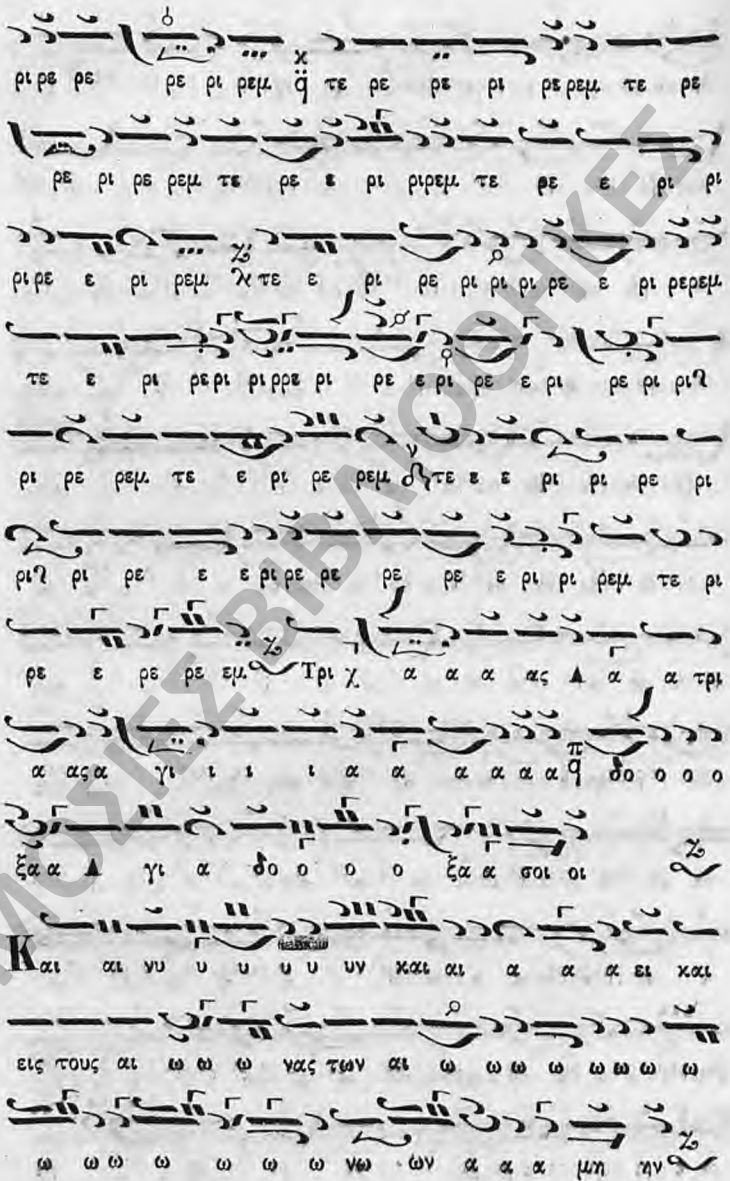 ρι ρε ρε ρε ρι ρεμ τε ρε ρε ρι ρε ρεμ τε ρε
ρε ρι ρε ρεμ τε ρε ε ρι ριρεμ τε ρε ε ρι ρι
ρι ρε ε ρι ρεμ τε ε ρι ρε ρι ρι ρι ρε ε ρι ρερεμ
τε ε ρι ρε ρι ρι ρρε ρι ρε ε ρι ρε ε ρι ρε ρι ρι
ρι ρε ρεμ τε ε ρι ρε ρεμ τε ε ε ρι ρι ρε ρι
ρι ρι ρε ε ε ρι ρε ρε ρε ρε ε ρι ρι ρεμ τε ρι
ρε ε ρε ρε εμ Τρι χ α α α ας Α α α τρι
α ας α γι ι ι ι α α α α α α δο ο ο ο
ξα α Α γι α δο ο ο ο ξα α σοι οι
Και αι νυ υ υ υ υ υν και αι α α α ει και
εις τους αι ω ω ω νας των αι ω ω ω ω ω ω ω ω
ω ω ω ω ω ω ω νω ων α α α μη ην
ΜΟΣΙΕΣ ΒΙΒΛΙΟΘΗΚΕΣ